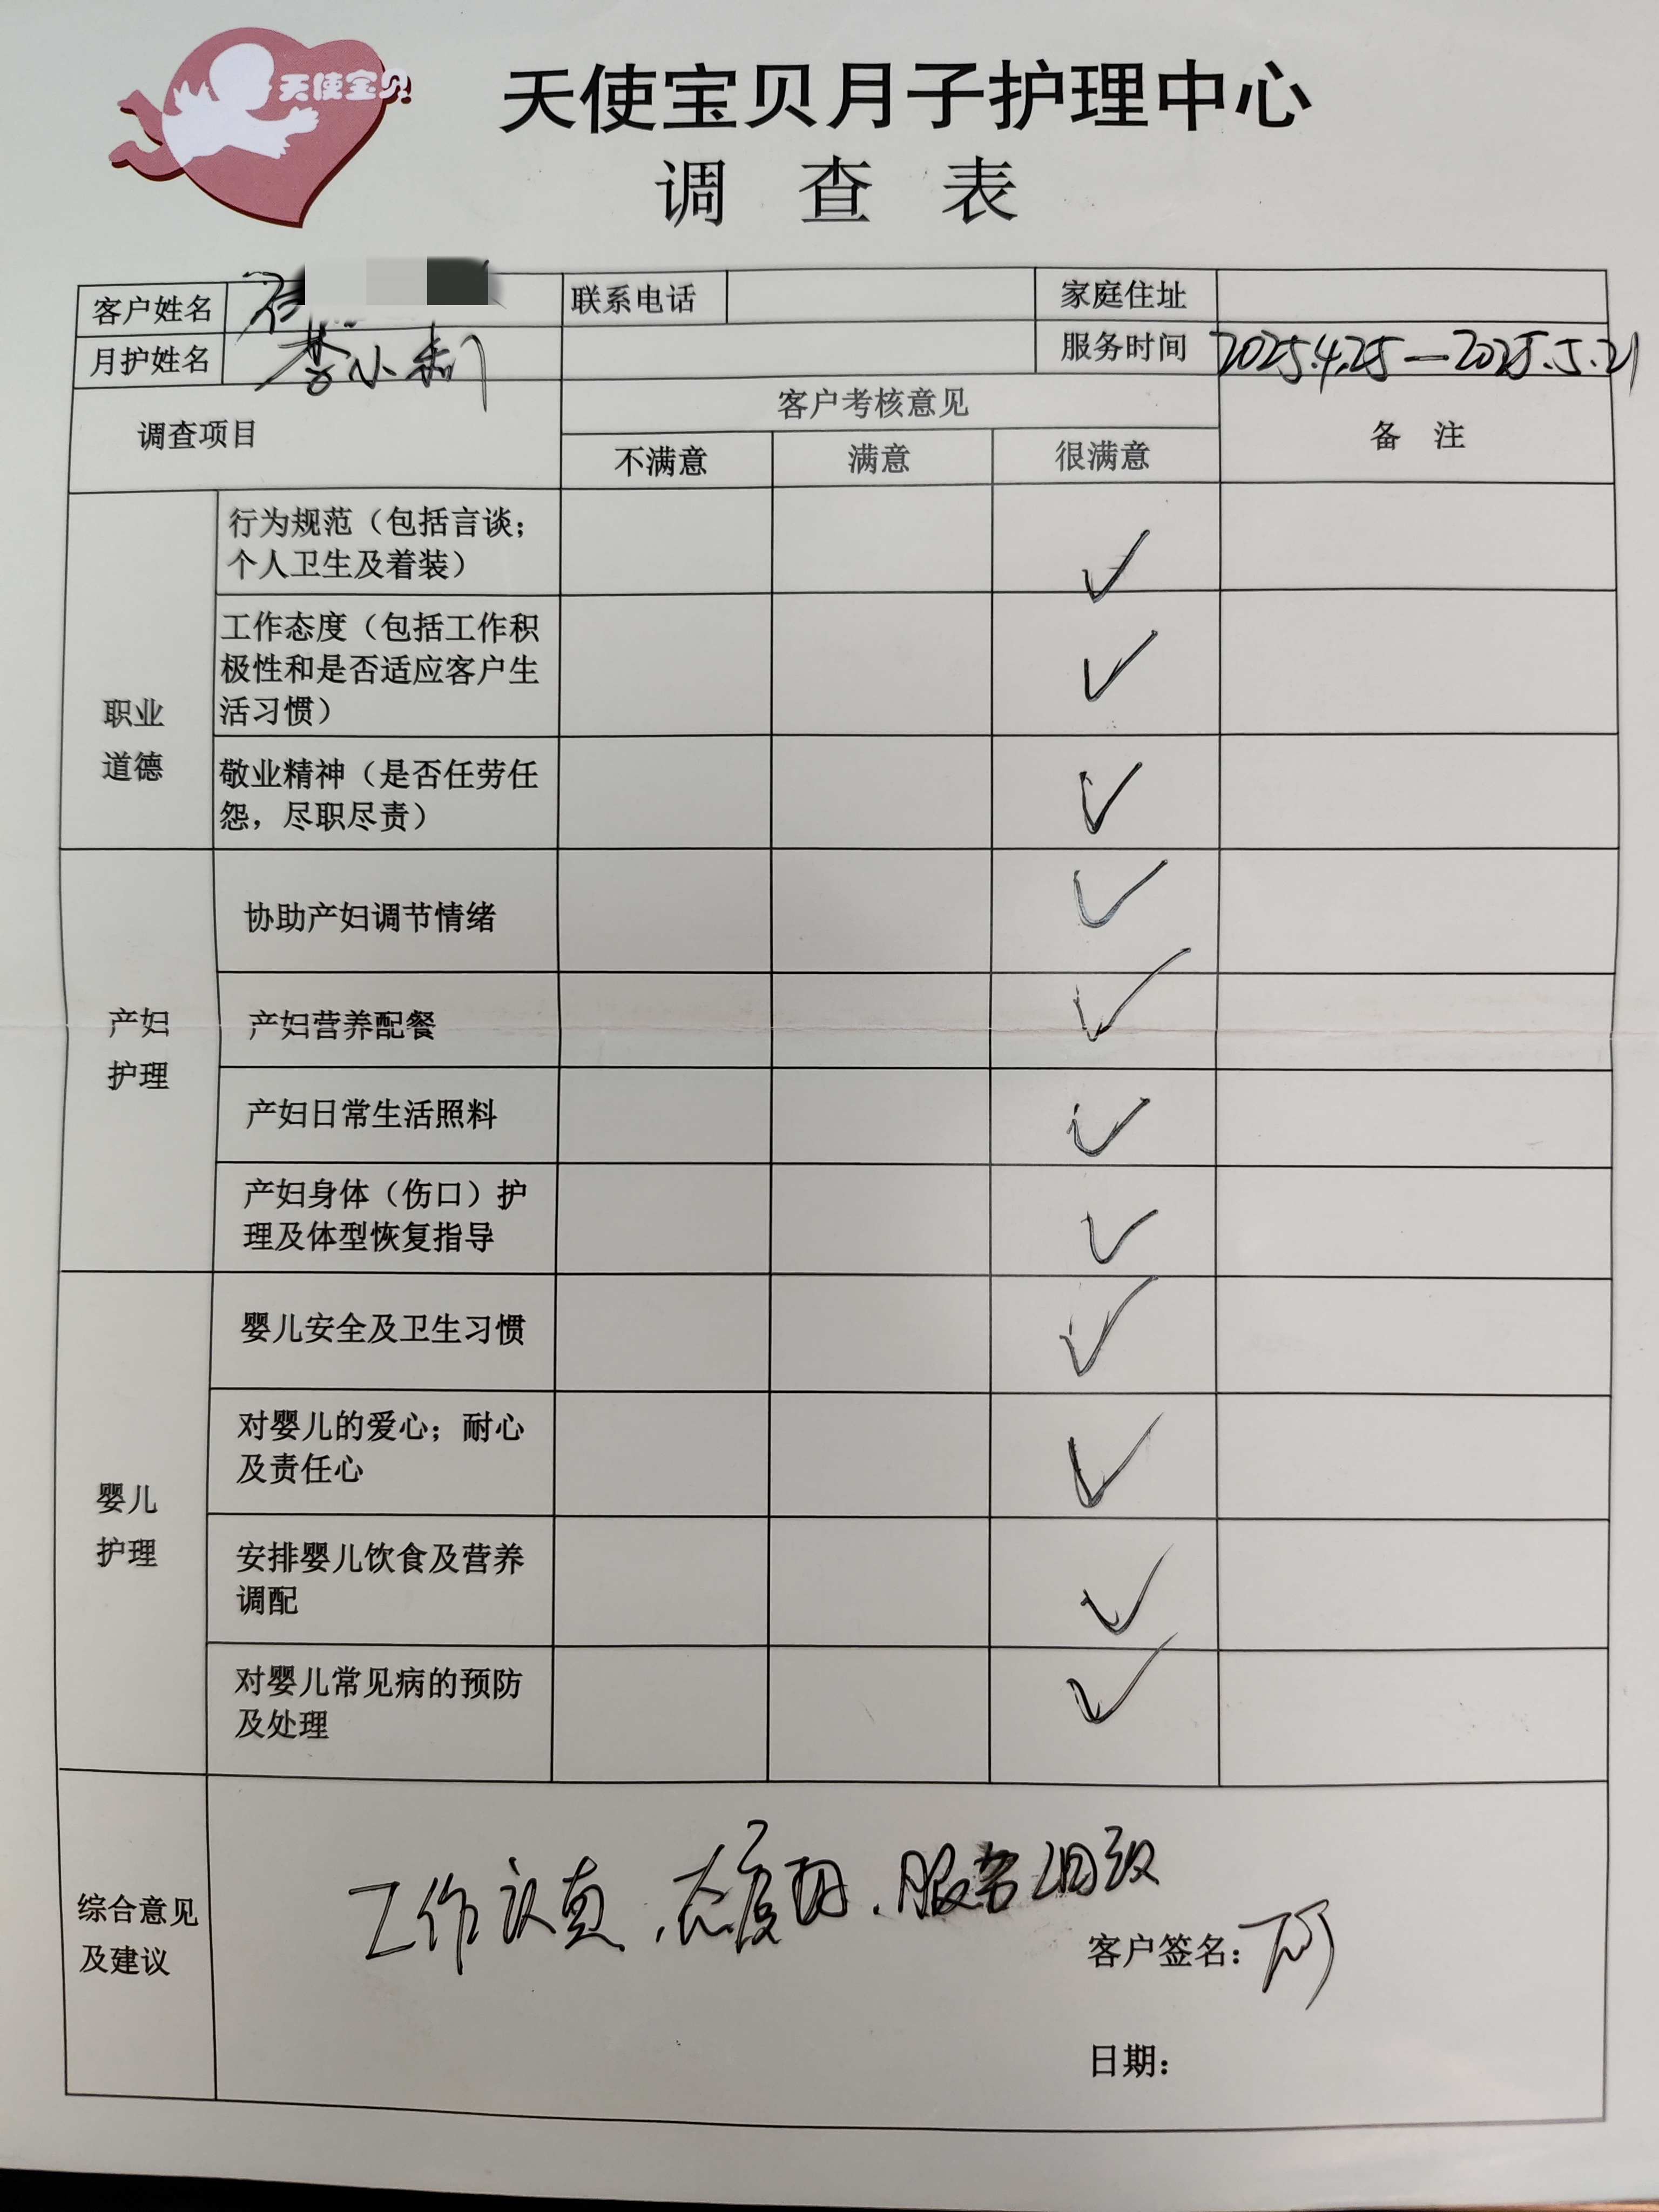 天使宝贝
天使宝贝月子护理中心
调 查 表
客户姓名 联系电话 家庭住址
月护姓名 李小利 服务时间 2025.4.25—2025.5.21
调查项目 客户考核意见 备 注
不满意 满意 很满意
职业
道德
行为规范（包括言谈；
个人卫生及着装） ✓
工作态度（包括工作积
极性和是否适应客户生
活习惯） ✓
敬业精神（是否任劳任
怨，尽职尽责） ✓
产妇
护理
协助产妇调节情绪 ✓
产妇营养配餐 ✓
产妇日常生活照料 ✓
产妇身体（伤口）护
理及体型恢复指导 ✓
婴儿
护理
婴儿安全及卫生习惯 ✓
对婴儿的爱心；耐心
及责任心 ✓
安排婴儿饮食及营养
调配 ✓
对婴儿常见病的预防
及处理 ✓
综合意见
及建议
工作认真、态度好、服务细致
客户签名：
日期：